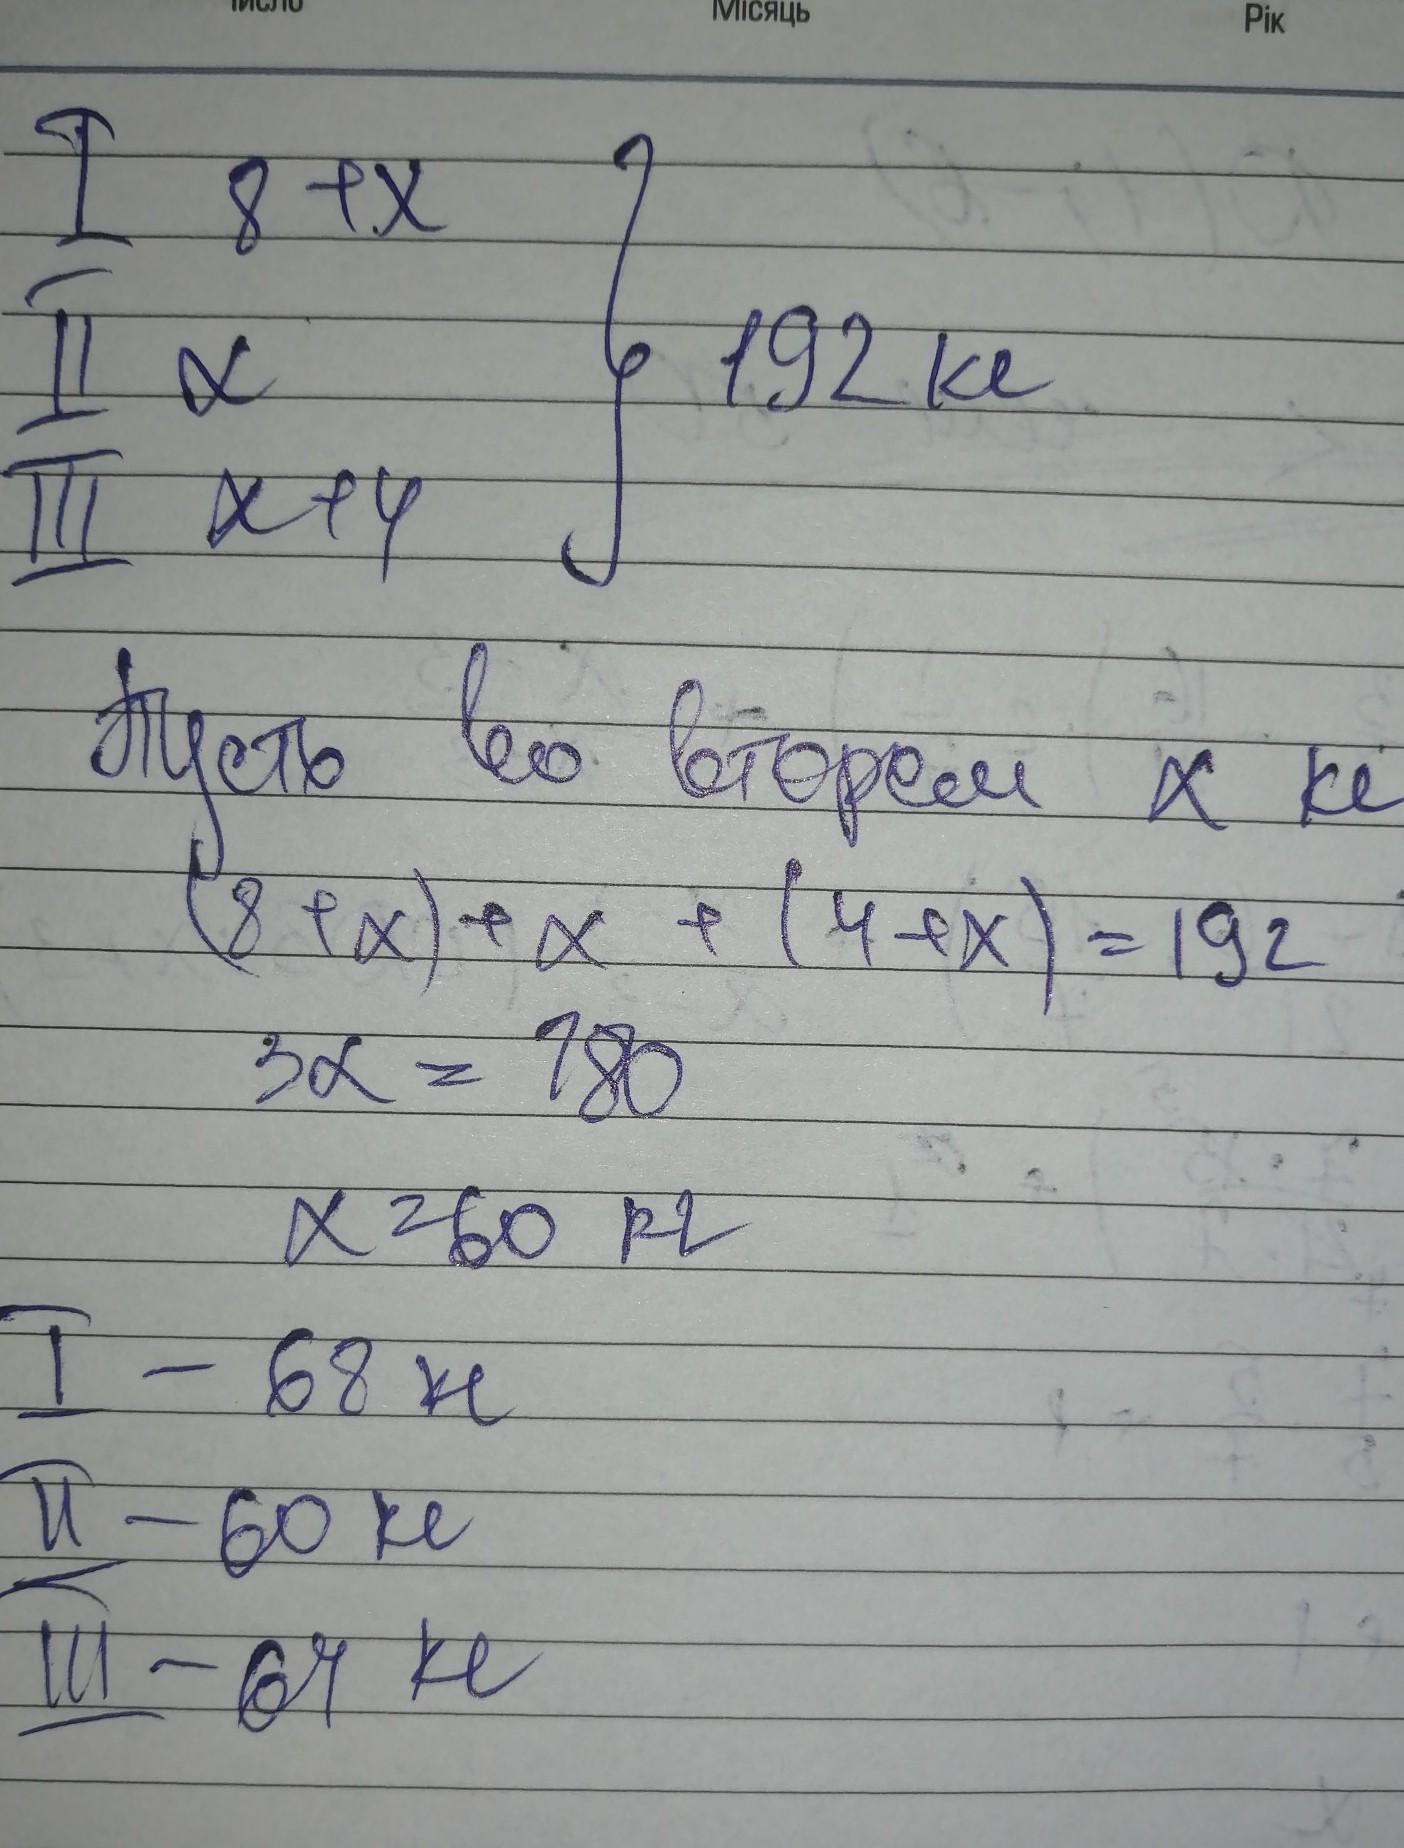 Число Місяць Рік
I 8+x
II x
III x+4
} 192 кг
Пусть во втором x кг
(8+x)+x+(4+x)=192
3x = 180
x=60 кг
I – 68 кг
II – 60 кг
III – 64 кг